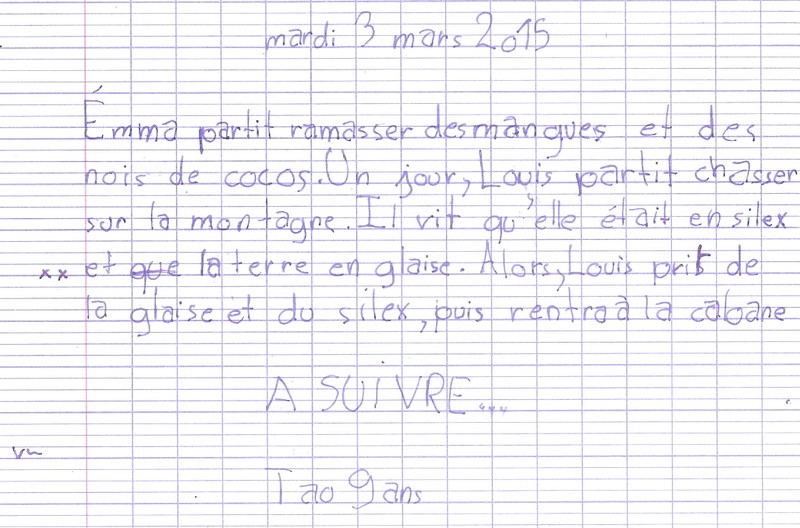 mardi 3 mars 2015
Émma partit ramasser des mangues et des
nois de cocos. Un jour, Louis partit chasser
sur la montagne. Il vit qu'elle était en silex
xx et que la terre en glaise. Alors, Louis prit de
la glaise et du silex, puis rentra à la cabane
A SUIVRE...
vu
Tao 9 ans